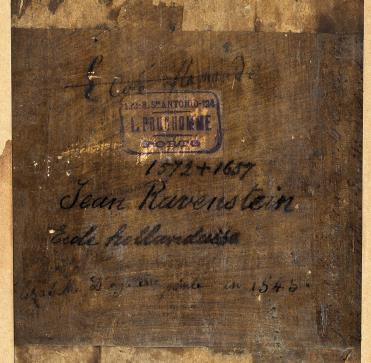 École Flamande
122-R. Sto ANTONIO-124
L. PRUCHOMME
PORTO
1572+1657
Jean Ravenstein
École hollandaise
in 1545.